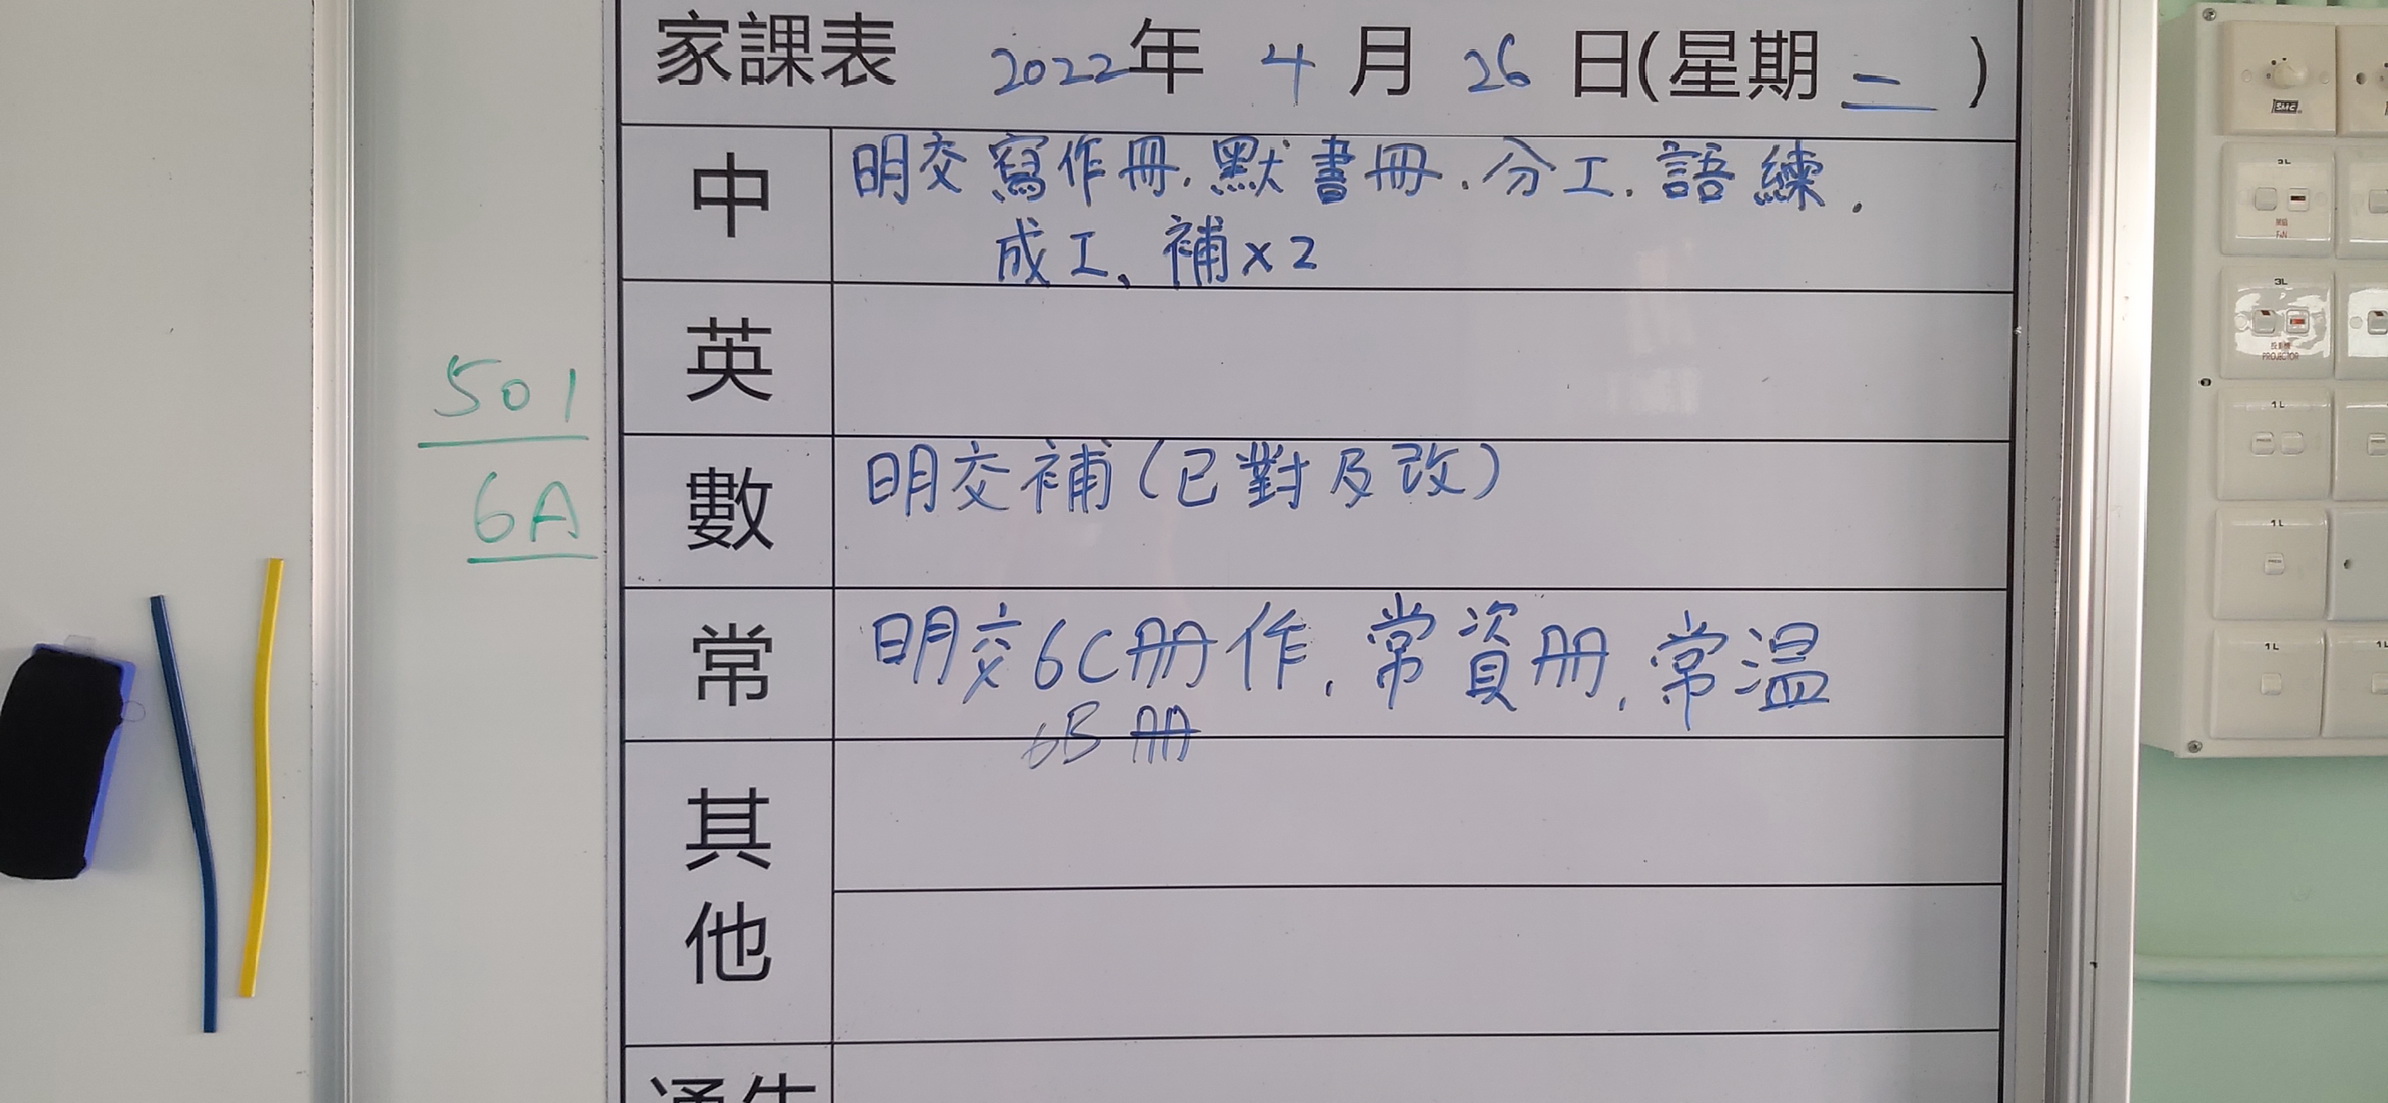 家課表 2022年 4月 26日(星期二)
中 明交寫作冊.默書冊.分工.語練.
成工、補x2
英
數 明交補(已對及改)
常 明交6C冊作.常資冊.常温
6B冊
其他
通告
501
6A
3L
FAN
3L
投影機
PROJECTOR
1L
1L
1L
1L